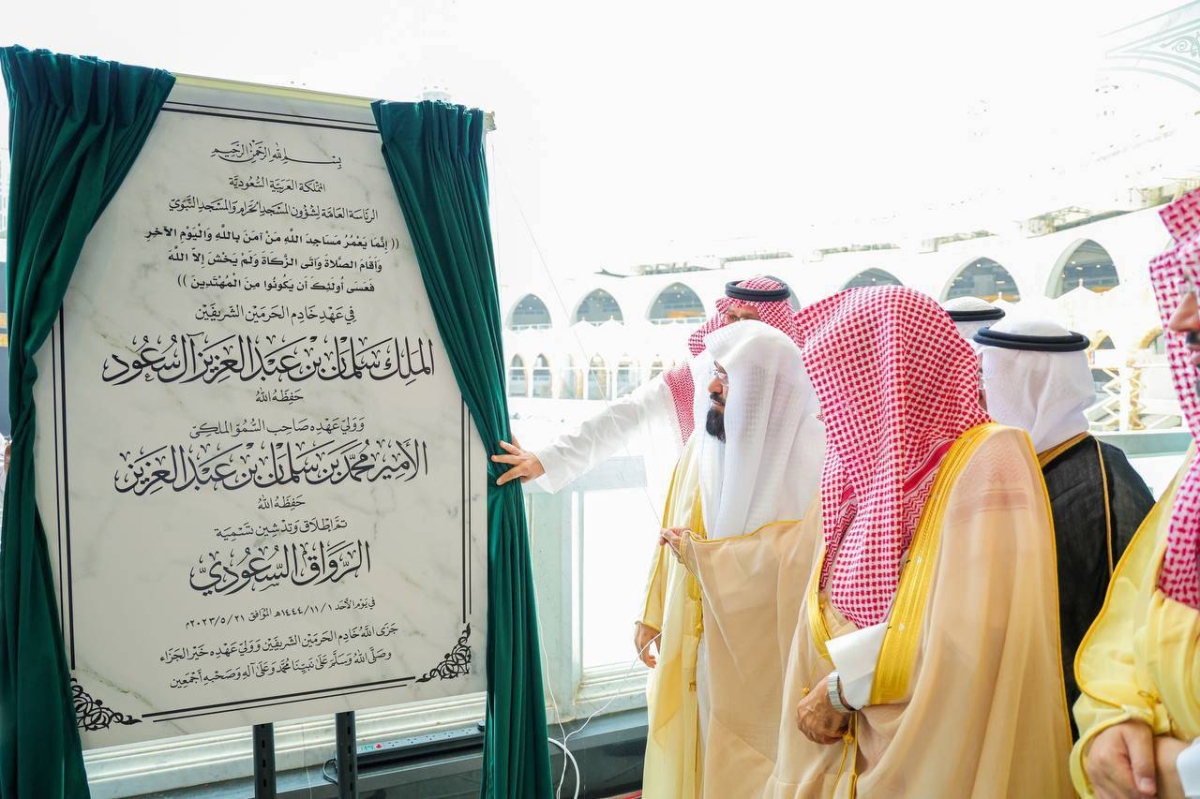 بِسْمِ اللهِ الرَّحْمٰنِ الرَّحِيْمِ
المَمْلَكَة العَرَبِيَّة السُّعُودِيَّة
الرِّئَاسَة العَامَّة لِشُؤُونِ المَسْجِدِ الحَرَامِ وَالمَسْجِدِ النَّبَوِيِّ
(( إِنَّمَا يَعْمُرُ مَسَاجِدَ اللهِ مَنْ آمَنَ بِاللهِ وَالْيَوْمِ الآخِرِ
وَأَقَامَ الصَّلَاةَ وَآتَى الزَّكَاةَ وَلَمْ يَخْشَ إِلاَّ اللهَ
فَعَسَى أُولئِكَ أَن يَكُونُوا مِنَ الْمُهْتَدِينَ ))
فِي عَهْدِ خَادِمِ الحَرَمَيْنِ الشَّرِيفَيْنِ
المَلِكِ سَلْمَانَ بْنِ عَبْدِ العَزِيزِ آل سُعُود
حَفِظَهُ اللهُ
وَوَلِيِّ عَهْدِهِ صَاحِبِ السُّمُوِّ المَلَكِيِّ
الأَمِيرِ مُحَمَّد بْنِ سَلْمَانَ بْنِ عَبْدِ العَزِيزِ
حَفِظَهُ اللهُ
تَمَّ إِطْلَاقُ وَتَدْشِينُ تَسْمِيَةِ
الرِّوَاقِ السُّعُودِيِّ
فِي يَوْمِ الأَحَد ١ /١١/ ١٤٤٤هـ المُوَافِق ٢١ /٥ /٢٠٢٣م
جَزَى اللهُ خَادِمَ الحَرَمَيْنِ الشَّرِيفَيْنِ وَوَلِيَّ عَهْدِهِ خَيْرَ الجَزَاء
وَصَلَّى اللهُ وَسَلَّمَ عَلَى نَبِيِّنَا مُحَمَّدٍ وَعَلَى آلِهِ وَصَحْبِهِ أَجْمَعِينَ